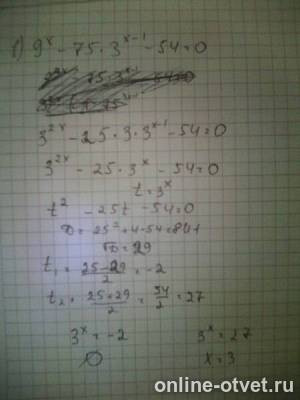 1) 9^x - 75·3^(x-1) - 54=0
3^(2x) - 25·3·3^(x-1) - 54=0
3^(2x) - 25·3^x - 54=0
t=3^x
t^2 - 25t - 54=0
D=25^2+4·54=841
√D=29
t₁ = (25-29)/2 = -2
t₂ = (25+29)/2 = 54/2 = 27
3^x = -2 3^x = 27
∅ x=3
online-otvet.ru